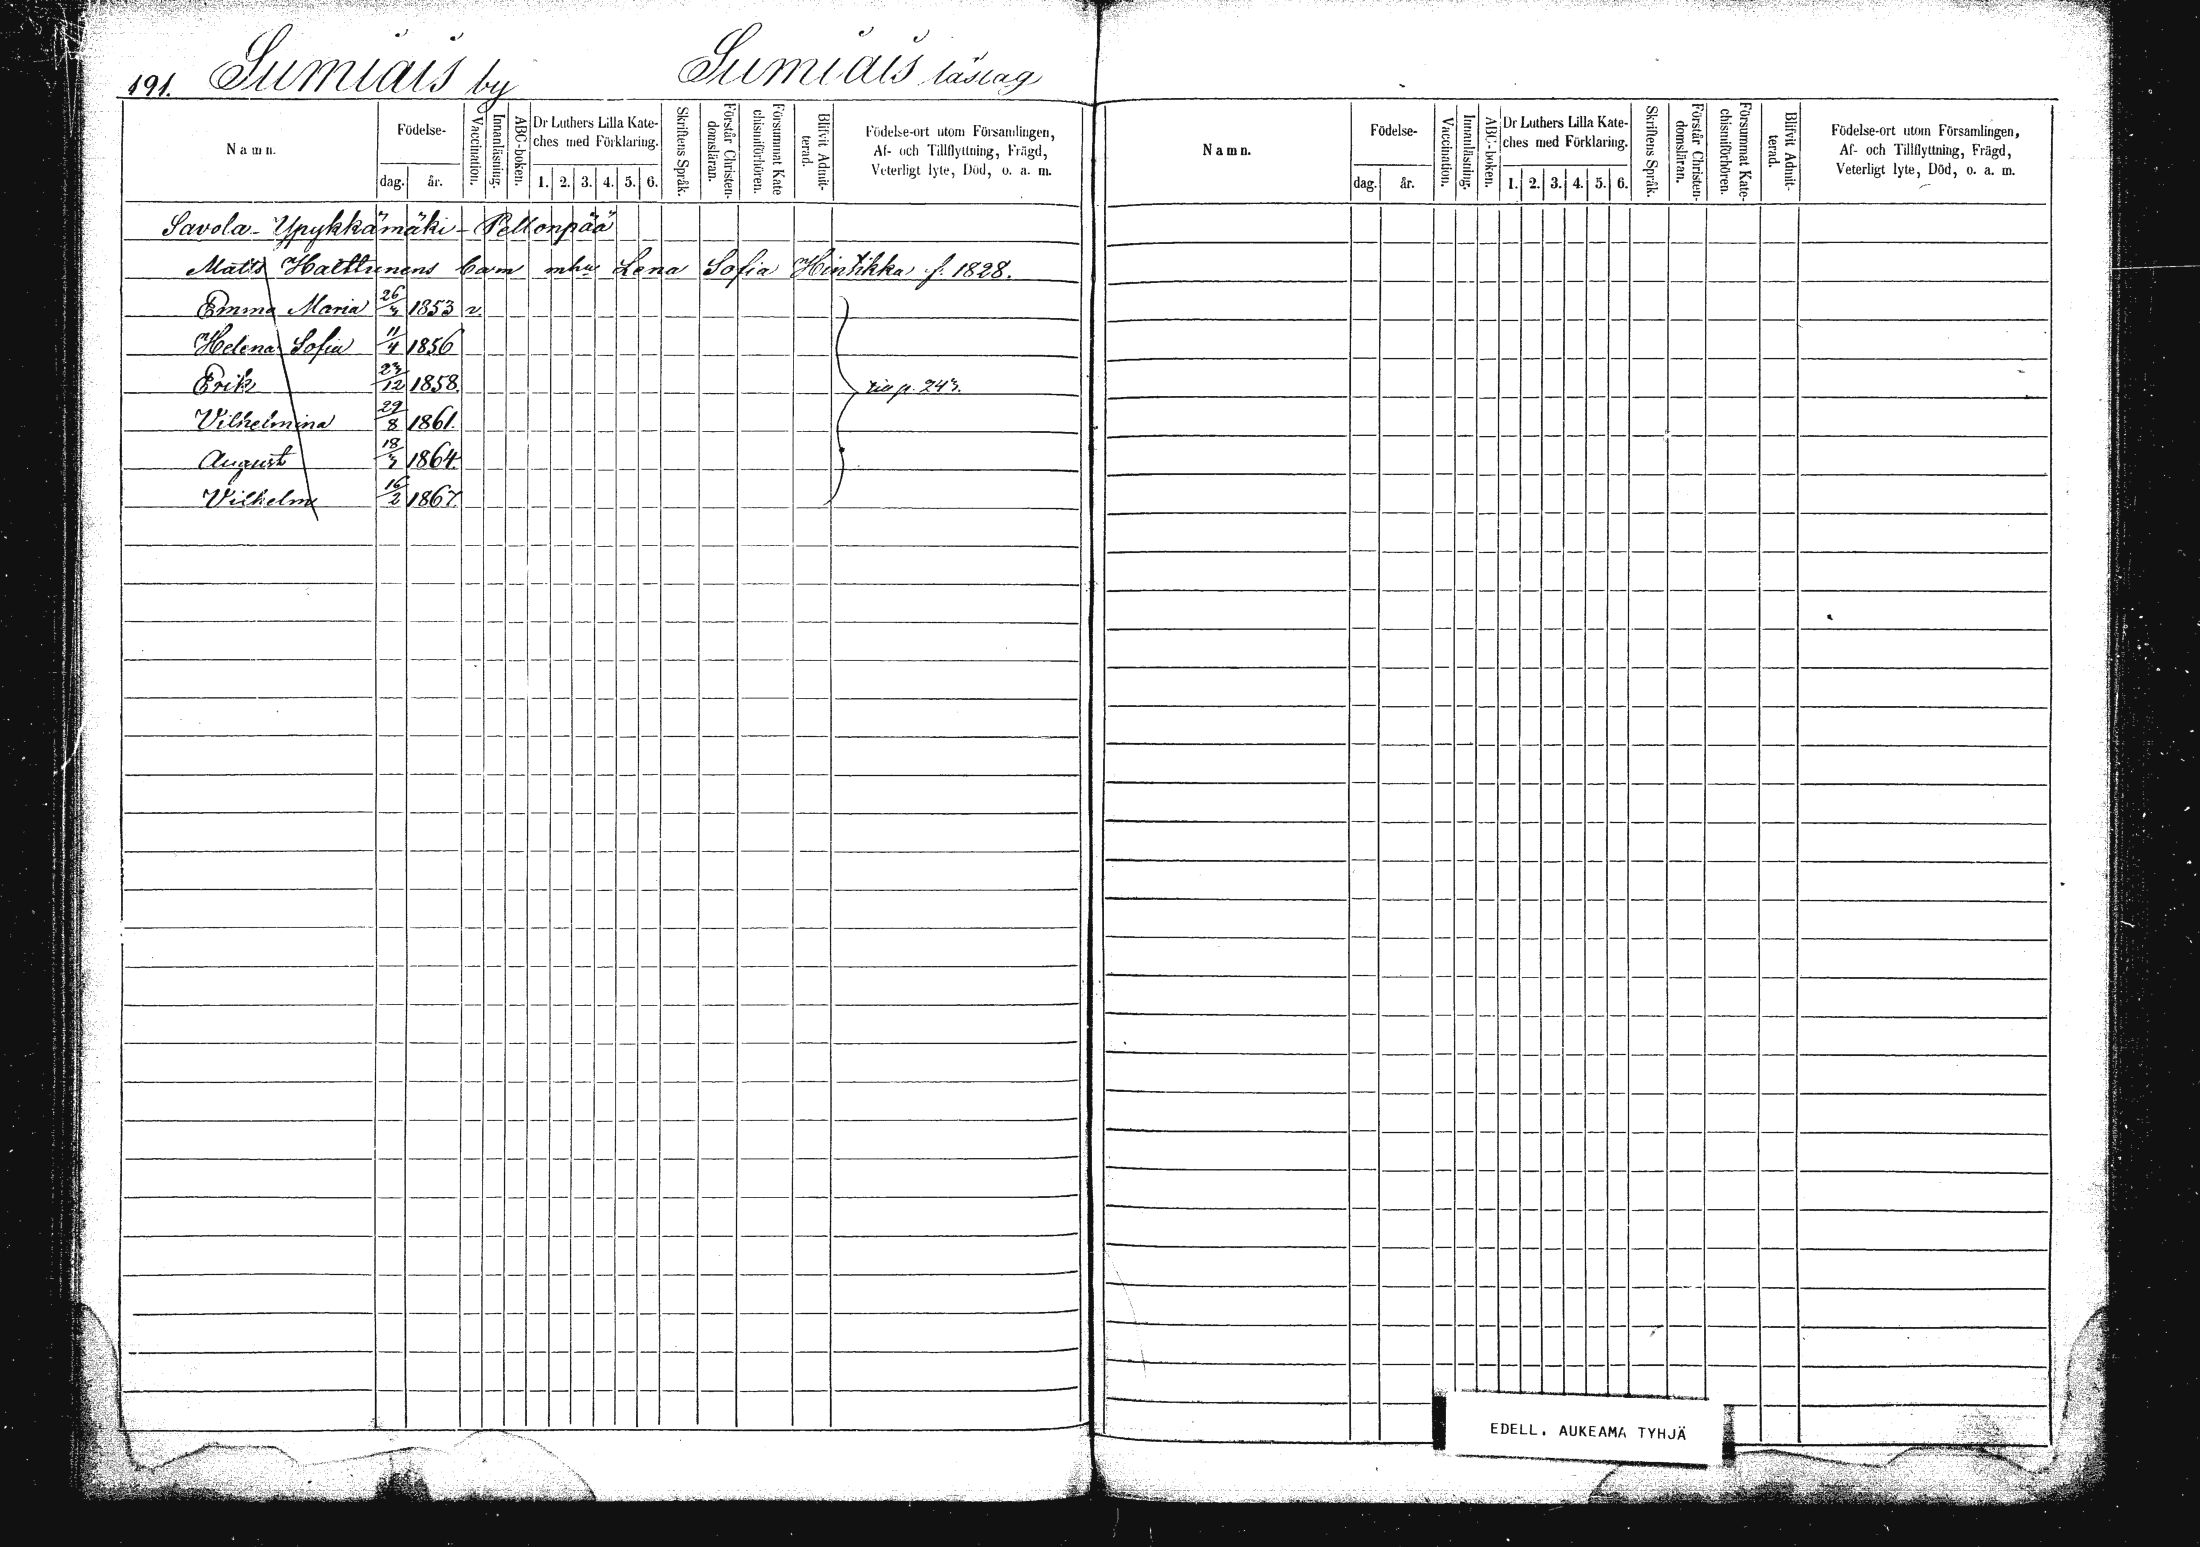 191. Sumiais by Sumiais läslag
Namn.
Födelse-
dag. år.
Vaccination.
Innanläsning.
ABC-boken.
Dr Luthers Lilla Kate-
ches med Förklaring.
1. 2. 3. 4. 5. 6.
Skriftens Språk.
Förstår Christen-
domsläran.
Försummat Kate
chismiförhören.
Blifvit Admit-
terad.
Födelse-ort utom Församlingen,
Af- och Tillflyttning, Frägd,
Veterligt lyte, Död, o. a. m.
Savola - Ypykkämäki - Peltonpää
Matts Halttunens barn Lena Sofia Hintikka f. 1828.
Emma Maria 26/3 1853 v.
Helena Sofia 11/4 1856
Erik 23/12 1858. till p. 243.
Vilhelmina 29/8 1861.
August 18/3 1864.
Vilhelm 16/2 1867.
Namn.
Födelse-
dag. år.
Vaccination.
Innanläsning.
ABC-boken.
Dr Luthers Lilla Kate-
ches med Förklaring.
1. 2. 3. 4. 5. 6.
Skriftens Språk.
Förstår Christen-
domsläran.
Försummat Kate-
chismiförhören.
Blifvit Admit-
terad.
Födelse-ort utom Församlingen,
Af- och Tillflyttning, Frägd,
Veterligt lyte, Död, o. a. m.
EDELL. AUKEAMA TYHJÄ